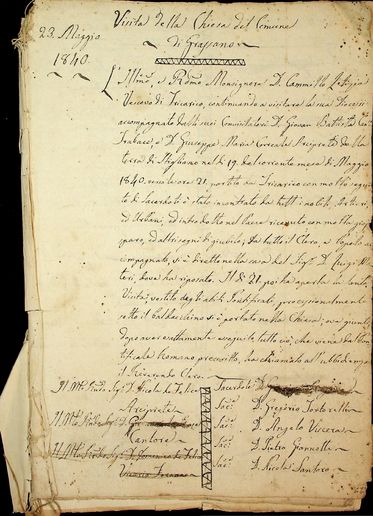 Visita della Chiesa del Comune
di Grassano
23. Maggio
1840
L'Illmo, e Rmo Monsignore D. Cammillo Letizia
Vescovo di Tricarico, continuando a visitare la sua Diocesi
accompagnato dalli suoi Convisitatori D. Giovan Battista
e D. Giuseppe Maria Correale Arciprete della
terra di Stigliano nel dì 19. del corrente mese di Maggio
1840. verso le ore 21. partito da Tricarico con molto seguito
di Sacerdoti è stato incontrato da tutti i nobili,
ed Urbani, ed introdotto nel paese ricevuto con molto
sparo, ed altri segni di giubilo, da tutto il Clero, e Popolo ac
compagnato, si è diretto nella casa del Sigr D. Luigi
dove ha riposato. Il dì 21. poi ha aperta la Santa
Visita; vestito degli abiti Pontificali, processionalmente
sotto il baldacchino si è portato nella Chiesa; ove giunto
dopo aver esattamente eseguito tutto ciò, che viene dal Pon
tificale Romano prescritto, ha chiamato all'ubbidienza
il Reverendo Clero
Il Mto Revdo Sigr D. Nicola de Felice
Arciprete
Il Mto Revdo Sigr D.
Cantore
Il Mto Revdo Sigr D. Domenico de Felice
Vicario Foraneo
Sacerdote D.
Sac. D. Gregorio Tortorelli
Sac. D. Angelo Viscera
Sac. D. Pietro Giannotta
Sac. D. Nicola Santoro